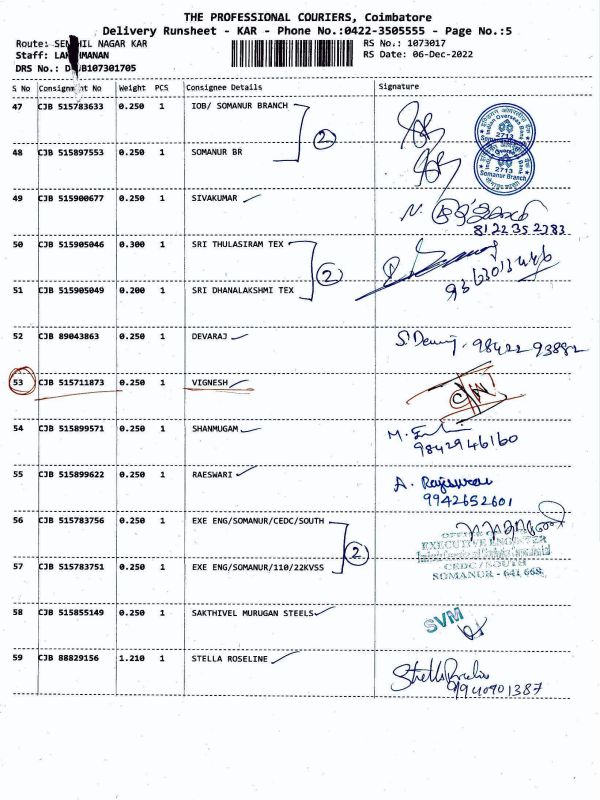 THE PROFESSIONAL COURIERS, Coimbatore
Delivery Runsheet - KAR - Phone No.:0422-3505555 - Page No.:5
Route: SENTHIL NAGAR KAR RS No.: 1073017
Staff: LAKSHMANAN RS Date: 06-Dec-2022
DRS No.: 107301705
S No Consignment No Weight PCS Consignee Details Signature
47 CJB 515783633 0.250 1 IOB/ SOMANUR BRANCH
2
2713
48 CJB 515897553 0.250 1 SOMANUR BR
2713
Somanur Branch
49 CJB 515900677 0.250 1 SIVAKUMAR
8122352783
50 CJB 515905046 0.300 1 SRI THULASIRAM TEX
2
51 CJB 515905049 0.200 1 SRI DHANALAKSHMI TEX
52 CJB 89043863 0.250 1 DEVARAJ
98422 93882
53 CJB 515711873 0.250 1 VIGNESH
54 CJB 515899571 0.250 1 SHANMUGAM
9842946160
55 CJB 515899622 0.250 1 RAESWARI
A. Rajeswari
9942652601
56 CJB 515783756 0.250 1 EXE ENG/SOMANUR/CEDC/SOUTH
2
EXECUTIVE ENGINEER
57 CJB 515783751 0.250 1 EXE ENG/SOMANUR/110/22KVSS
CEDC/SOUTH
SOMANUR - 641 668
58 CJB 515855149 0.250 1 SAKTHIVEL MURUGAN STEELS
SVM
59 CJB 88829156 1.210 1 STELLA ROSELINE
9940901387